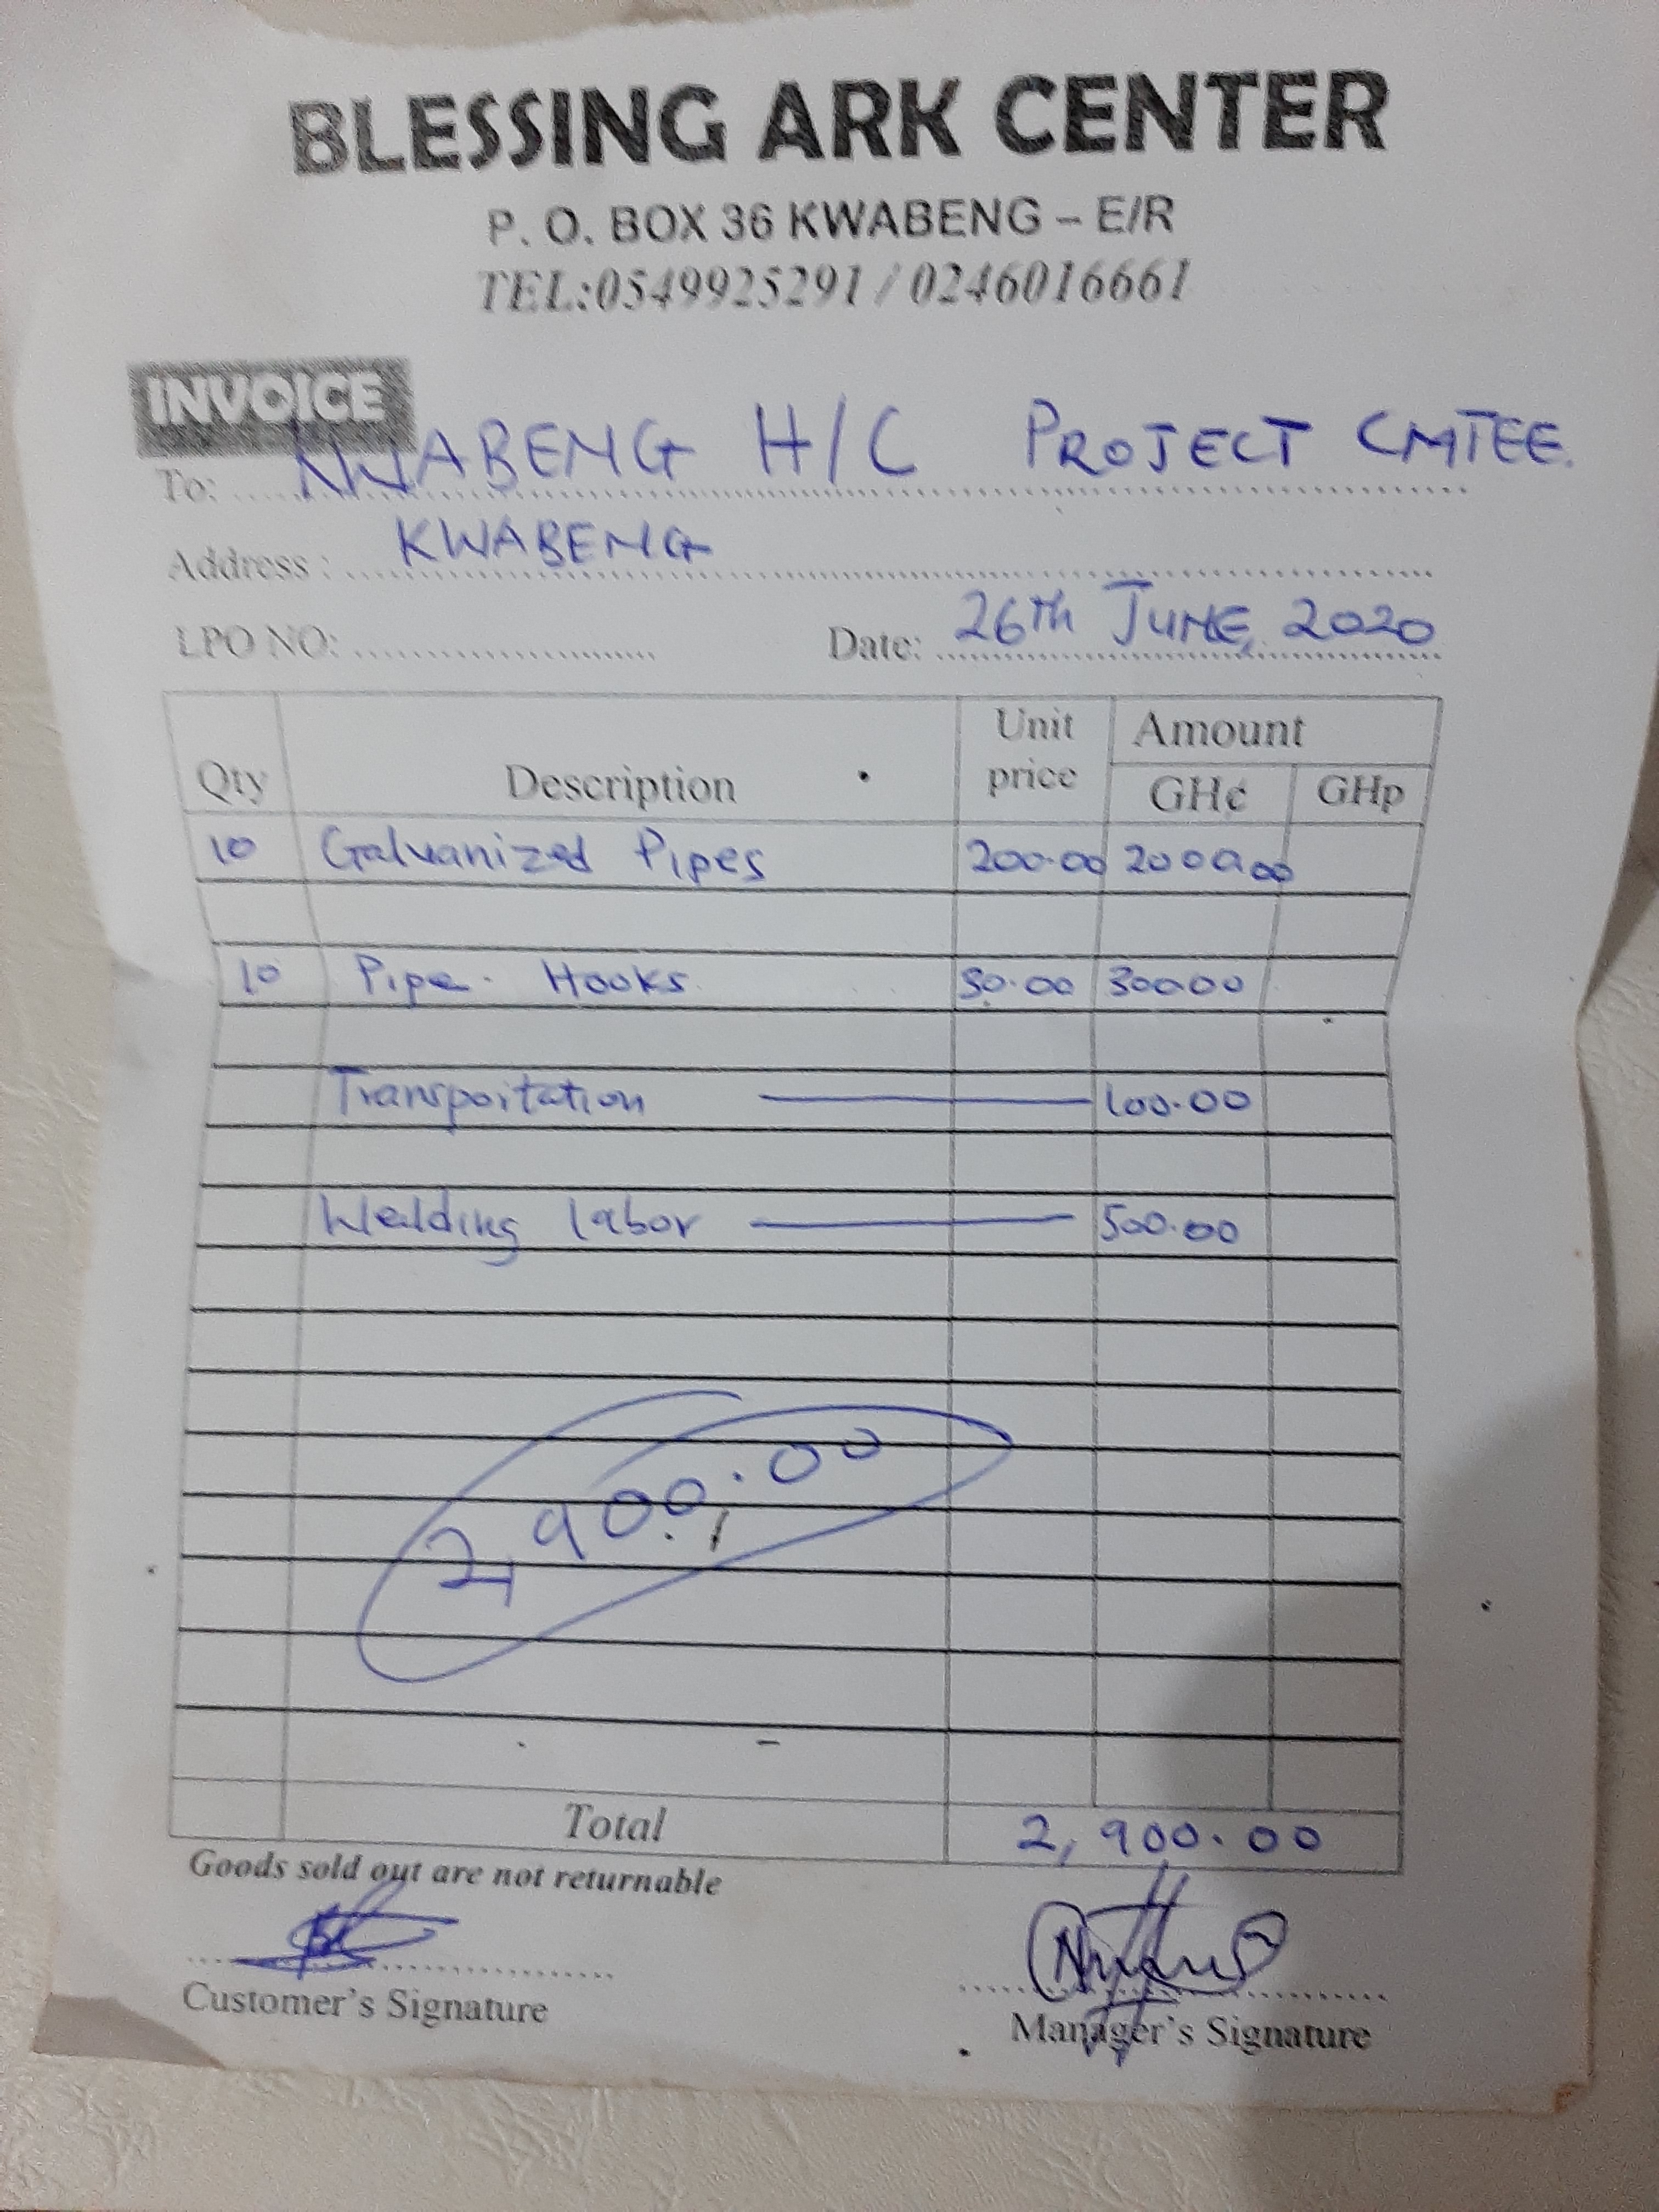 BLESSING ARK CENTER
P. O. BOX 36 KWABENG – E/R
TEL:0549925291 / 0246016661
INVOICE
To: KWABENG H/C PROJECT CMTEE.
Address : KWABENG
LPO NO: Date: 26th JUNE, 2020
Qty Description Unit price Amount
GH¢ GHp
10 Galvanized Pipes 200.00 2000.00
10 Pipe Hooks 30.00 300.00
Transportation 100.00
Welding labor 500.00
2,900.00
Total 2,900.00
Goods sold out are not returnable
Customer's Signature Manager's Signature